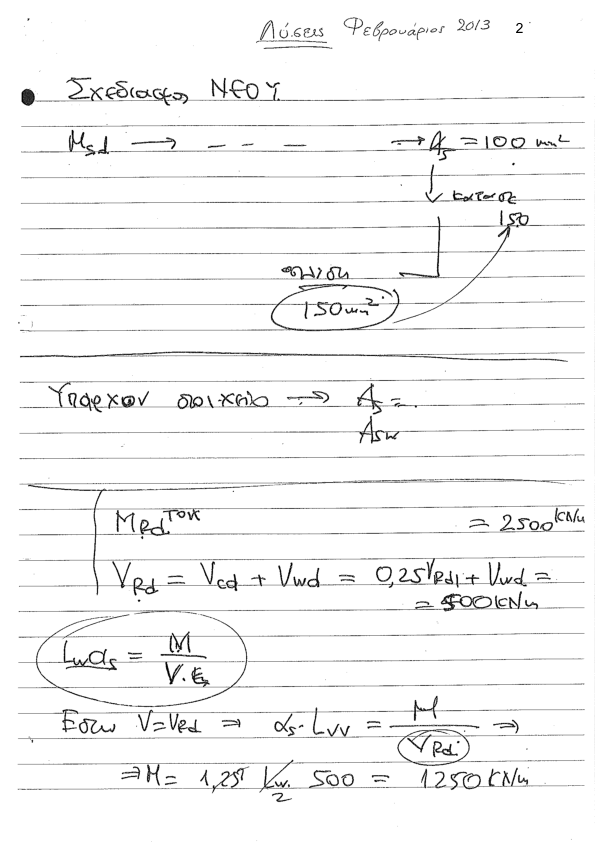 Λύσεις Φεβρουάριος 2013 2
Σχεδιασμος ΝΕΟΥ
Msd → - - - → As = 100 mm²
150
150 mm²
Υπαρχον στοιχείο → As = .
Asw
MRd τοιχ = 2500 kNm
VRd = Vcd + Vwd = 0,25VRd1 + Vwd =
= 500 kNm
Lwαs =
M
V.
Εστω V=VRd ⇒ αs· Lw = M ⇒
VRd
⇒ M = 1,25 Lw. 500 = 1250 kNm
2